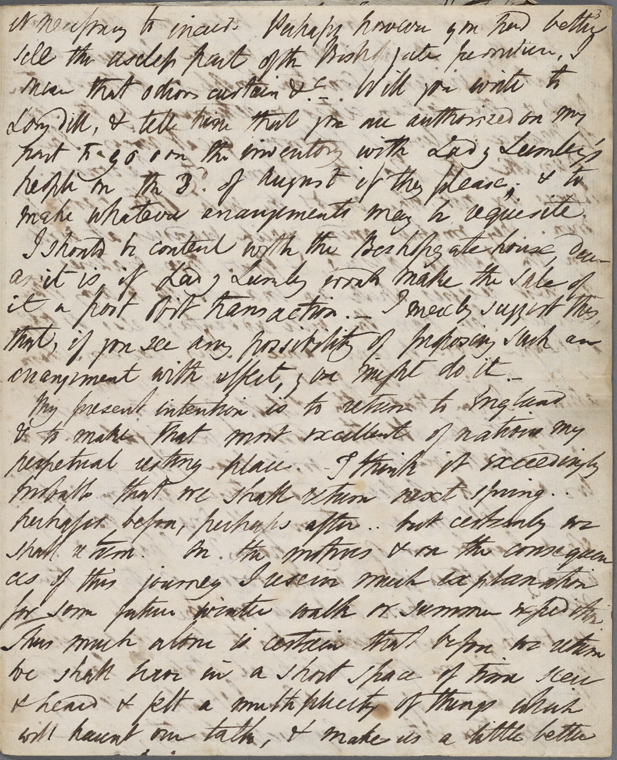 it necessary to incur. Perhaps however you had better
sell the useless part of the Bishopsgate furniture, I
mean that odious curtain &c. Will you write to
Longdill, & tell him that you are authorized on my
part to go over the inventory with Lady Lumley's
people on the 3d. of August if they please, & to
make whatever arrangements may be requisite.
I should be content with the Bishopsgate house, dear
as it is, if Lady Lumley would make the sale of
it a post obit transaction. — I merely suggest this,
that, if you see any possibility of proposing such an
arrangement with effect, you might do it —
My present intention is to return to England
& to make that most excellent of nations my
perpetual resting place. I think it exceedingly
probable that we shall return next spring ..
perhaps before, perhaps after .. but certainly we
shall return. On the motives & on the consequen
ces of this journey I reserve much explanation
for some future winter walk or summer expedition.
This much alone is certain that before we return
we shall have in a short space of time seen
& heard & felt a multiplicity of things which
will haunt our talk, & make us a little better